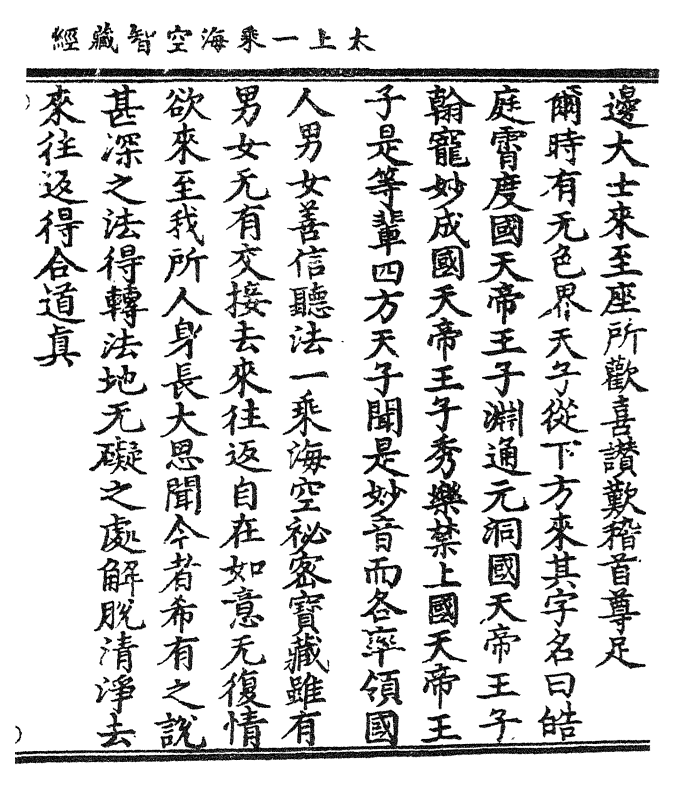 太上一乘海空智藏經
邊大士來至座所歡喜讃歎稽首尊足
爾時有无色界天子從下方來其字名曰皓
庭霄度國天帝王子淵通元洞國天帝王子
翰寵妙成國天帝王子秀樂禁上國天帝王
子是等輩四方天子聞是妙音而各率領國
人男女善信聽法一乘海空祕密寶藏雖有
男女无有交接去來往返自在如意无復情
欲來至我所人身長大思聞今者希有之說
甚深之法得轉法地无礙之處解脫清淨去
來往返得合道真